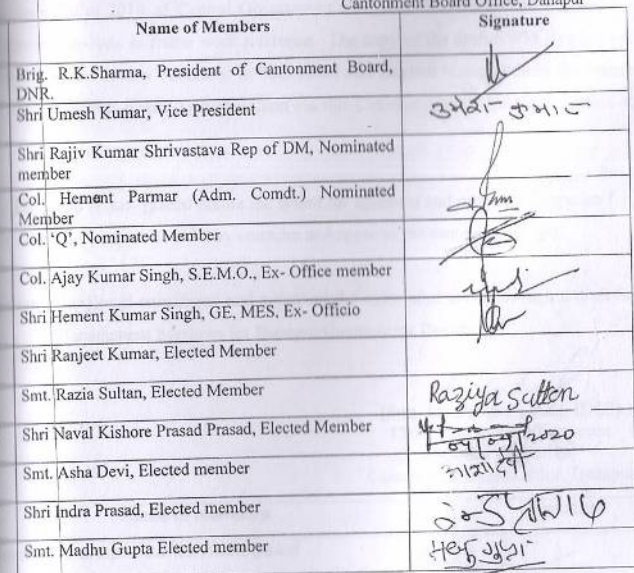 Cantonment Board Office, Danapur
Name of Members Signature
Brig. R.K.Sharma, President of Cantonment Board, DNR.
Shri Umesh Kumar, Vice President उमेश कुमार
Shri Rajiv Kumar Shrivastava Rep of DM, Nominated member
Col. Hement Parmar (Adm. Comdt.) Nominated Member
Col. 'Q', Nominated Member
Col. Ajay Kumar Singh, S.E.M.O., Ex- Office member
Shri Hement Kumar Singh, GE, MES, Ex- Officio
Shri Ranjeet Kumar, Elected Member
Smt. Razia Sultan, Elected Member Raziya Sultan
Shri Naval Kishore Prasad Prasad, Elected Member 2020
Smt. Asha Devi, Elected member आशा देवी
Shri Indra Prasad, Elected member
Smt. Madhu Gupta Elected member मधु गुप्ता